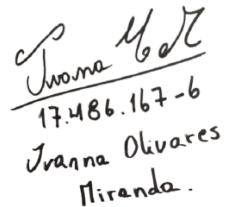 Ivana M M
17.486.167-6
Ivanna Olivares
Miranda.